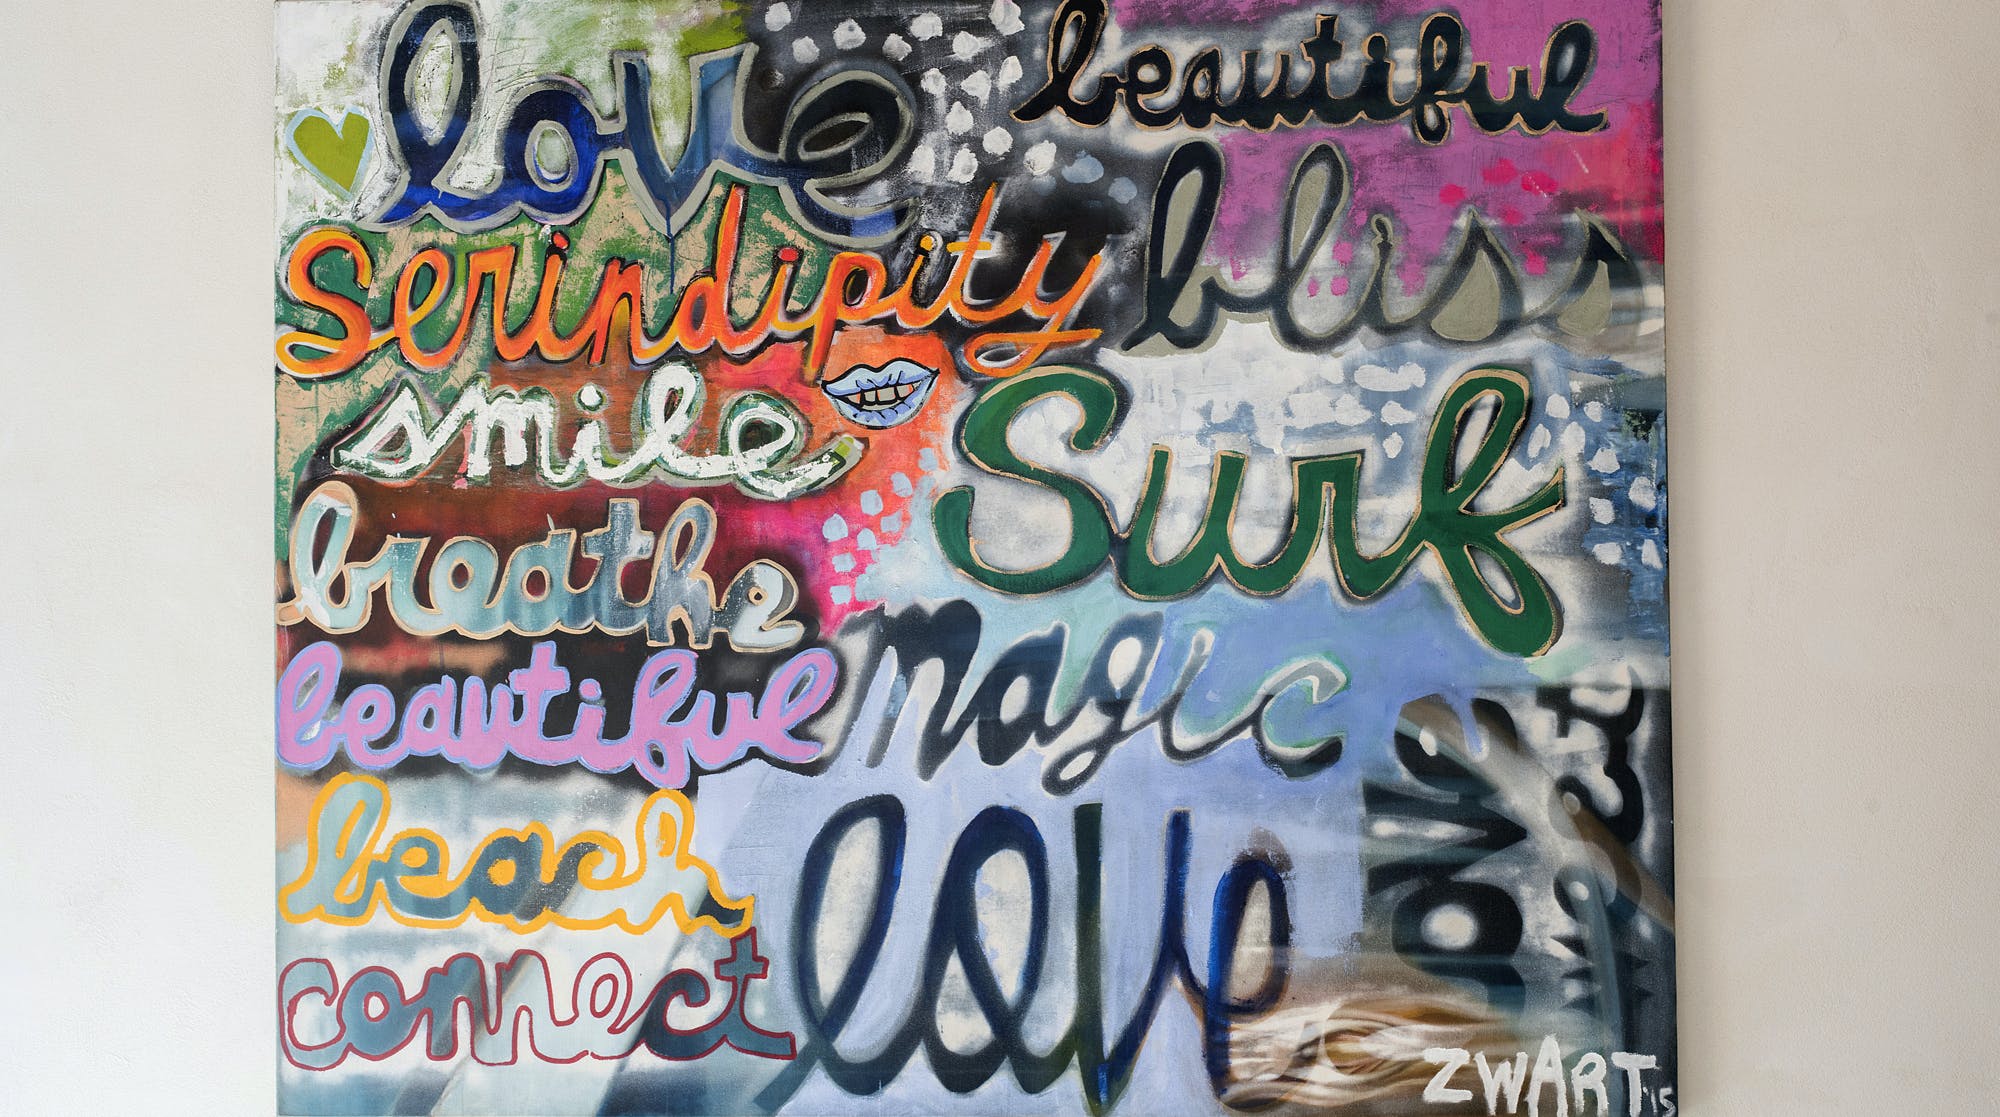 love
beautiful
serindipity
bliss
smile
Surf
breathe
magic
beautiful
love
beach
love
connect
ZWART '15